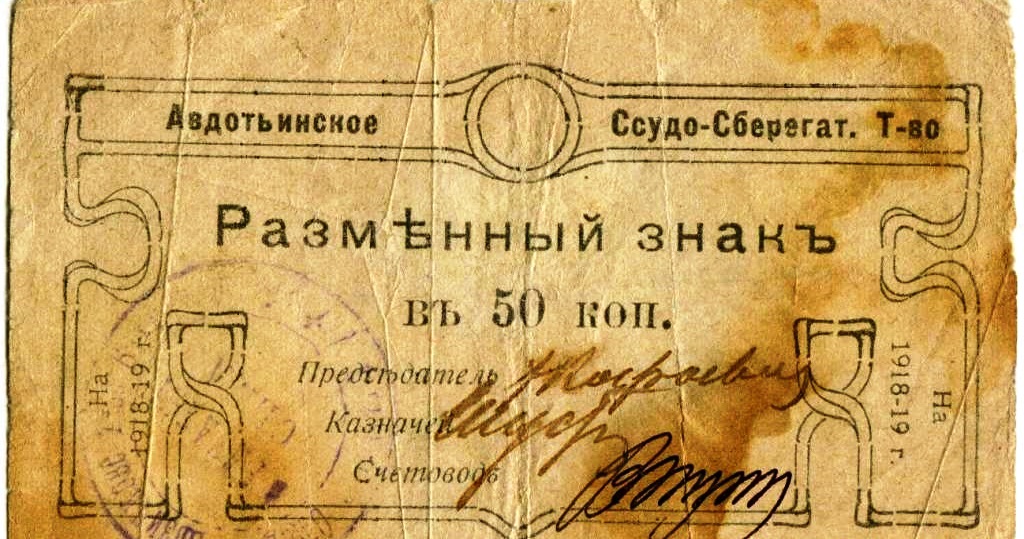 Авдотьинское Ссудо-Сберегат. Т-во
Размѣнный знакъ
въ 50 коп.
Предсѣдатель
Казначей
Счетоводъ
На 1918-19 г.
На 1918-19 г.